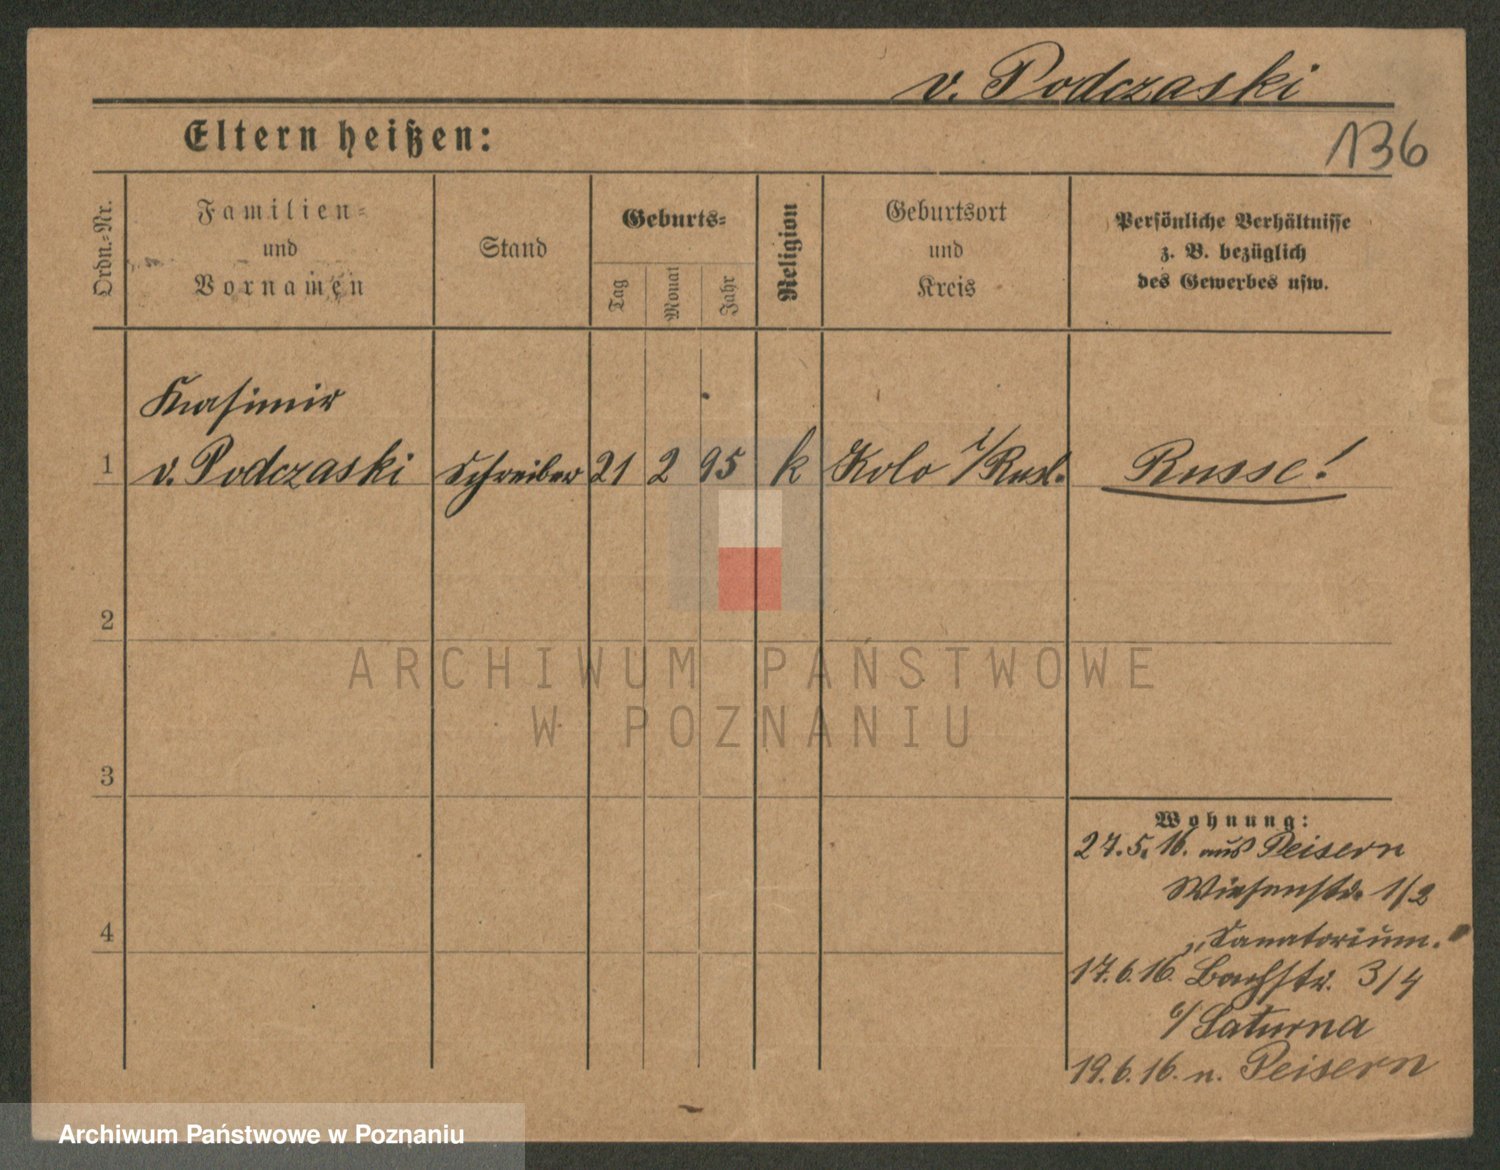 v. Podczaski
Eltern heißen:
136
Ordn.=Nr.
Familien=
und
Vornamen
Stand
Geburts=
Tag
Monat
Jahr
Religion
Geburtsort
und
Kreis
Persönliche Verhältnisse
z. B. bezüglich
des Gewerbes usw.
Kasimir
1 v. Podczaski Schreiber 21 2 95 k Kolo i/Rusl. Russe!
2
3
4
Wohnung:
27.5.16. aus Peisern
Wiesenstr. 1/2
"Sanatorium."
17.6.16. Bachstr. 3/4
b/ Saturna
19.6.16. n. Peisern
ARCHIWUM PAŃSTWOWE
W POZNANIU
Archiwum Państwowe w Poznaniu